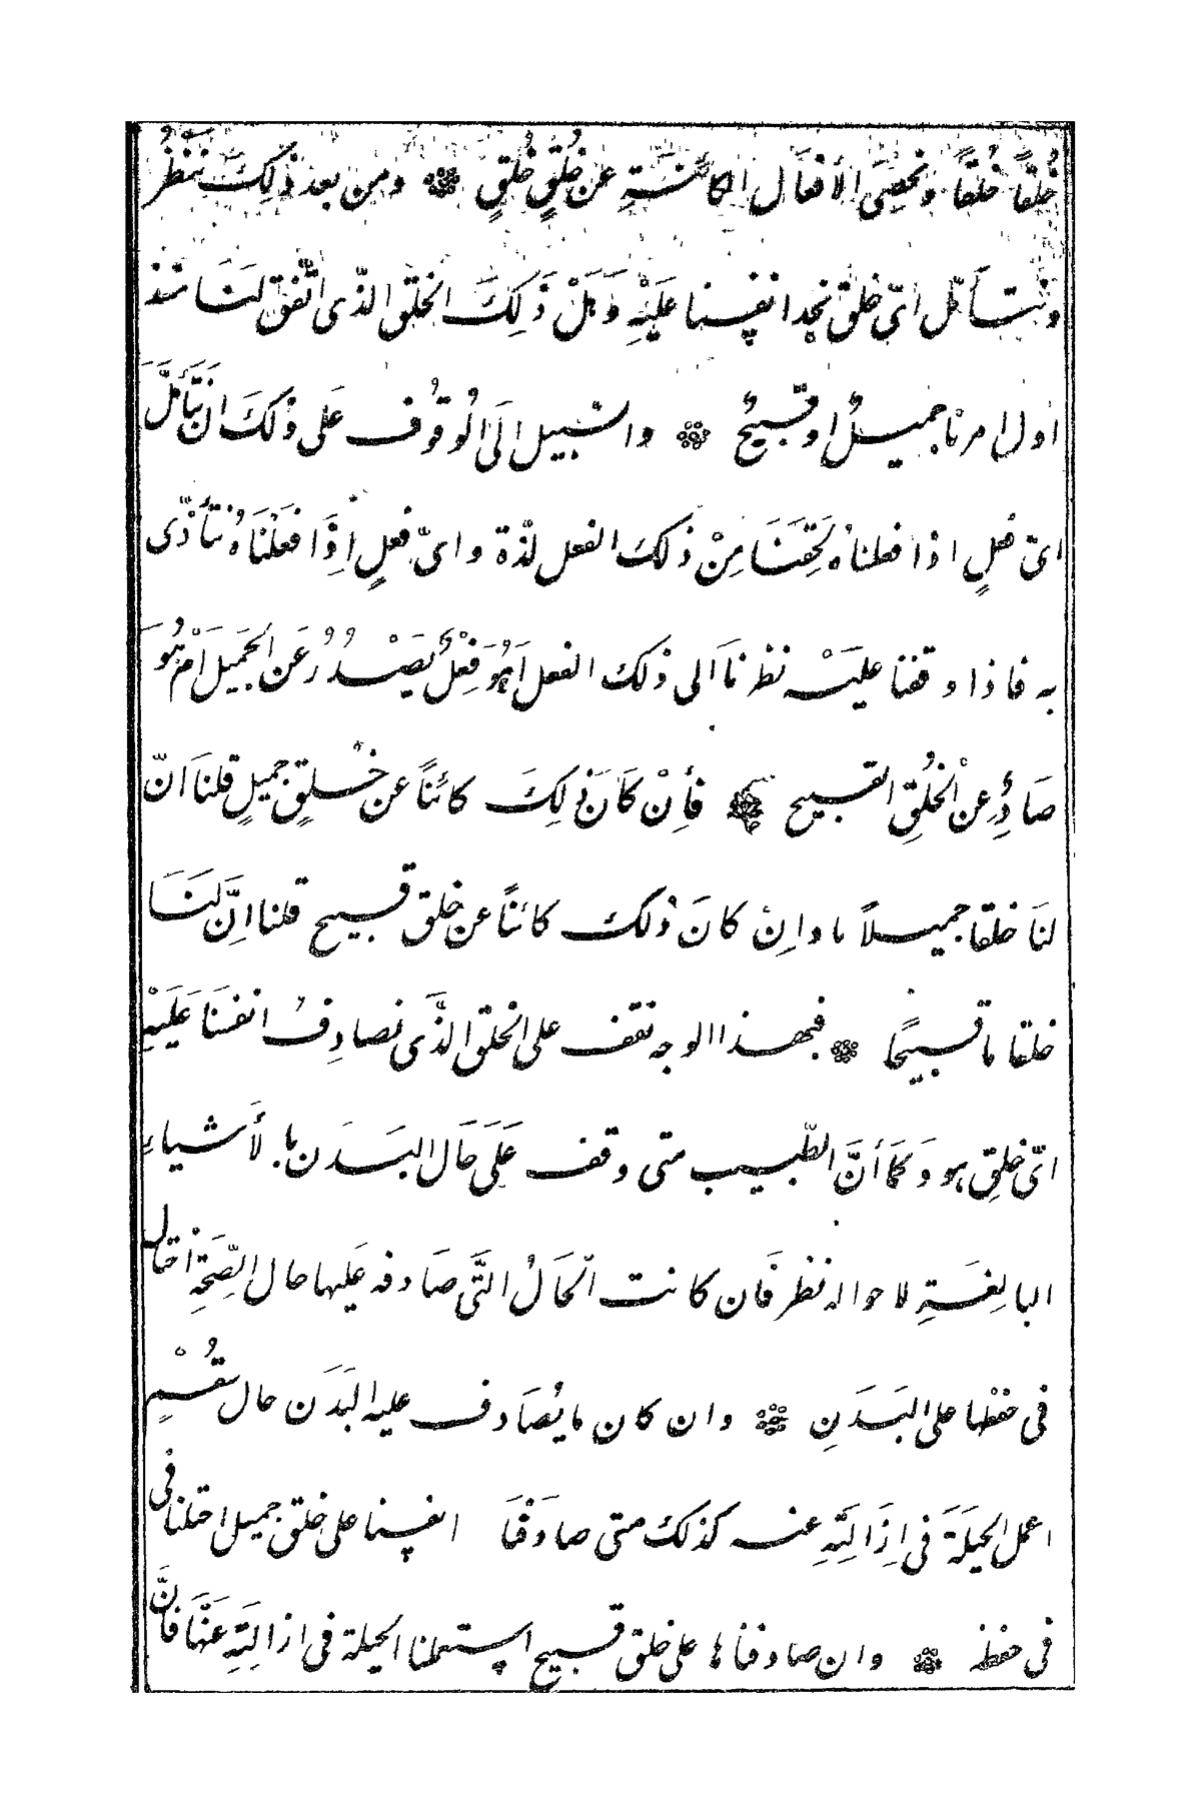 خُلُقًا خُلُقًا وَنُحصِىَ الأَفعَال الكَائنَةِ عن خُلُقٍ خُلُقٍ ۞ ومن بعد ذلِكَ نَنظُرُ
ونتأمّل اىّ خلقٍ نجد انفسنا عَلَيْهِ وَهَلْ ذَلِكَ الخلق الذّى اتّفق لنَا منذ
اول امرنا جميلٌ او قبيحٌ ۞ والسّبيل الَى الوُقُوف عَلى ذلكَ ان نَتَأَمَّلَ
اىّ فعلٍ اذا فعلناهُ لَحِقَنَا مِنْ ذلكَ الفعل لذّة واىّ فعلٍ اِذَا فَعَلْنَاهُ نتأَذّى
به فاذا وقفنا عليَه نظرنَا الى ذلك الفعل اَهُوَ فِعْلٌ يَصْدُرُ عَن الجَمِيل اَمْ هُوَ
صَادِرٌ عِنْ الخُلُقِ القبيح ۞ فأِنْ كَانَ ذلِكَ كائنًا عن خُلقٍ جميلٍ قلنَا انّ
لنَا خلقا جميلاً ما وانِ كانَ ذلك كائنًا عن خلق قبيح قلنا اِنَّ لَنَا
خلقا ما قبيحًا ۞ فبهذا الوجه نقف على الخلق الذَّى نصادِفُ انفسَنَا عَلَيْهِ
اىّ خلقٍ هو وَكَمَا أَنَّ الطّبيب متى وقف عَلَى حَال البَدَن با لأَشياءِ
البالِغَةِ لاحواله نظر فَان كانت الْحَالُ التَّى صَادفه عَليها حال الصِّحَةِ احتال
فى حفظها على البَدَنِ ۞ وان كان ما يُصَادف عليه البَدَن حال سُقْمٍ
اعمل الحيلَةَ فى اِزَالَتِهِ عنه كذلك متى صادَفْنَا انفسنا على خلق جميل احتلنا فى
فى حفظه ۞ وان صادفناها على خلق قبيح استعملنا الحيلة فى ازالَتِهِ عَنْهَا فانَّ